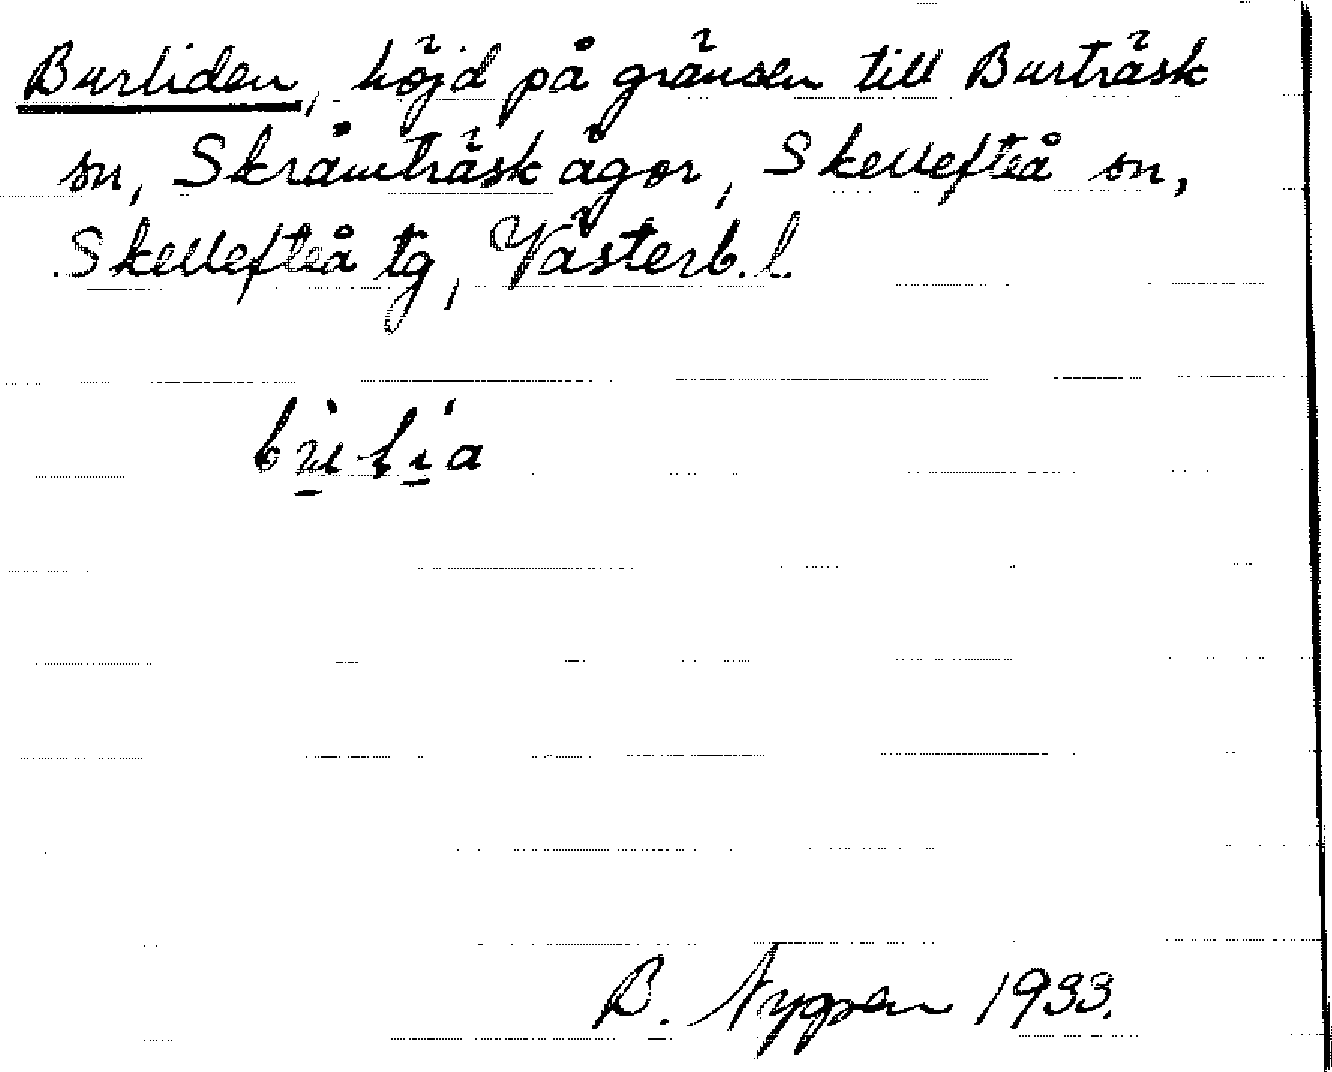 Burliden, höjd på gränsen till Burträsk
sn, Skråmträsk ägor, Skellefteå sn,
Skellefteå tg, Västerb. l.
B. Nygren 1933.